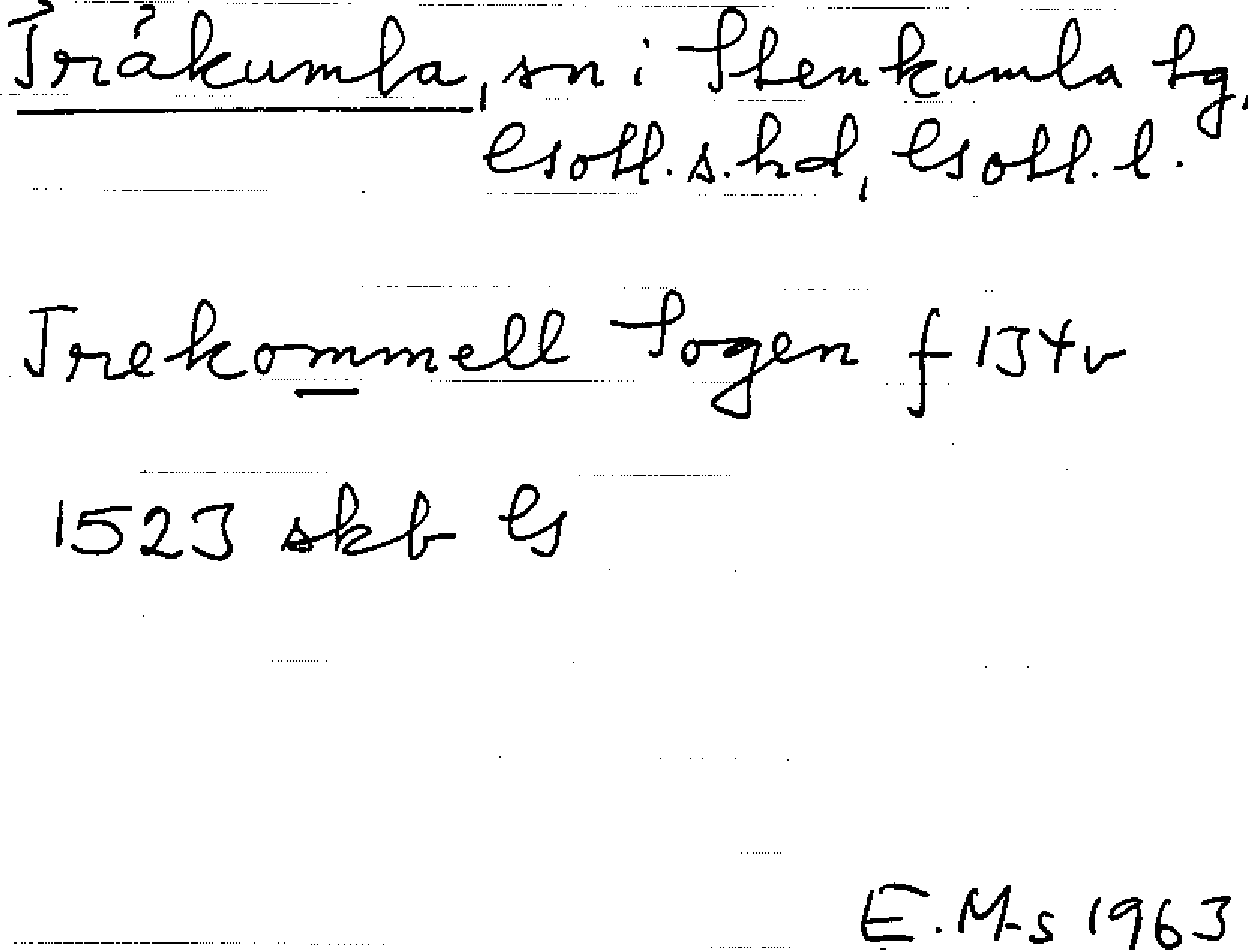 Träkumla, sn i Stenkumla tg,
Gotl. s. hd, Gotl. l.
Trekommell Sogen f 134v
1523 skb G
E. M-s 1963